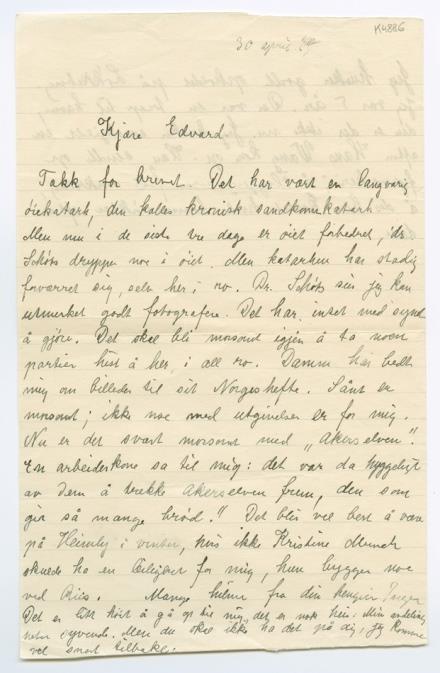 K4886
30 april
Kjære Edvard.
Takk for brevet. Det har vært en langvarig
øiekatark, den kalles kronisk sandkornkatark
Men nu i de siste tre dage er øiet forbedret, dr.
Schiøts drypper noe i øiet. Men katarken har stadig
forværret sig, selv her i ro. Dr. Schiøts sier jeg kan
utmerket godt fotografere. Det har intet med synet
å gjøre. Det skal bli morsomt igjen å ta noen
partier hist å her, i all ro. Damm har bedt
mig om billeder til sit Norgeshefte. Sånt er
morsomt; ikke noe med utgivelser er for mig.
Nu er det svært morsomt med „Akerselven".
En arbeiderkone sa til mig: det var da hyggeligt
av Dem å trekke Akerselven frem, den som
gir så mange brød!" Det blir vel best å være
på Heimly i vinter, hvis ikke Kristine Munch
skulde ha en leilighet for mig, hun bygger noe
ved Riis. Mange hilsner fra din hengivne Inger
Det er litt koist å gå op til mig, det er nok
syvende. Men du skal ikke ha det på dig, jeg kommer
vel snart tilbake.